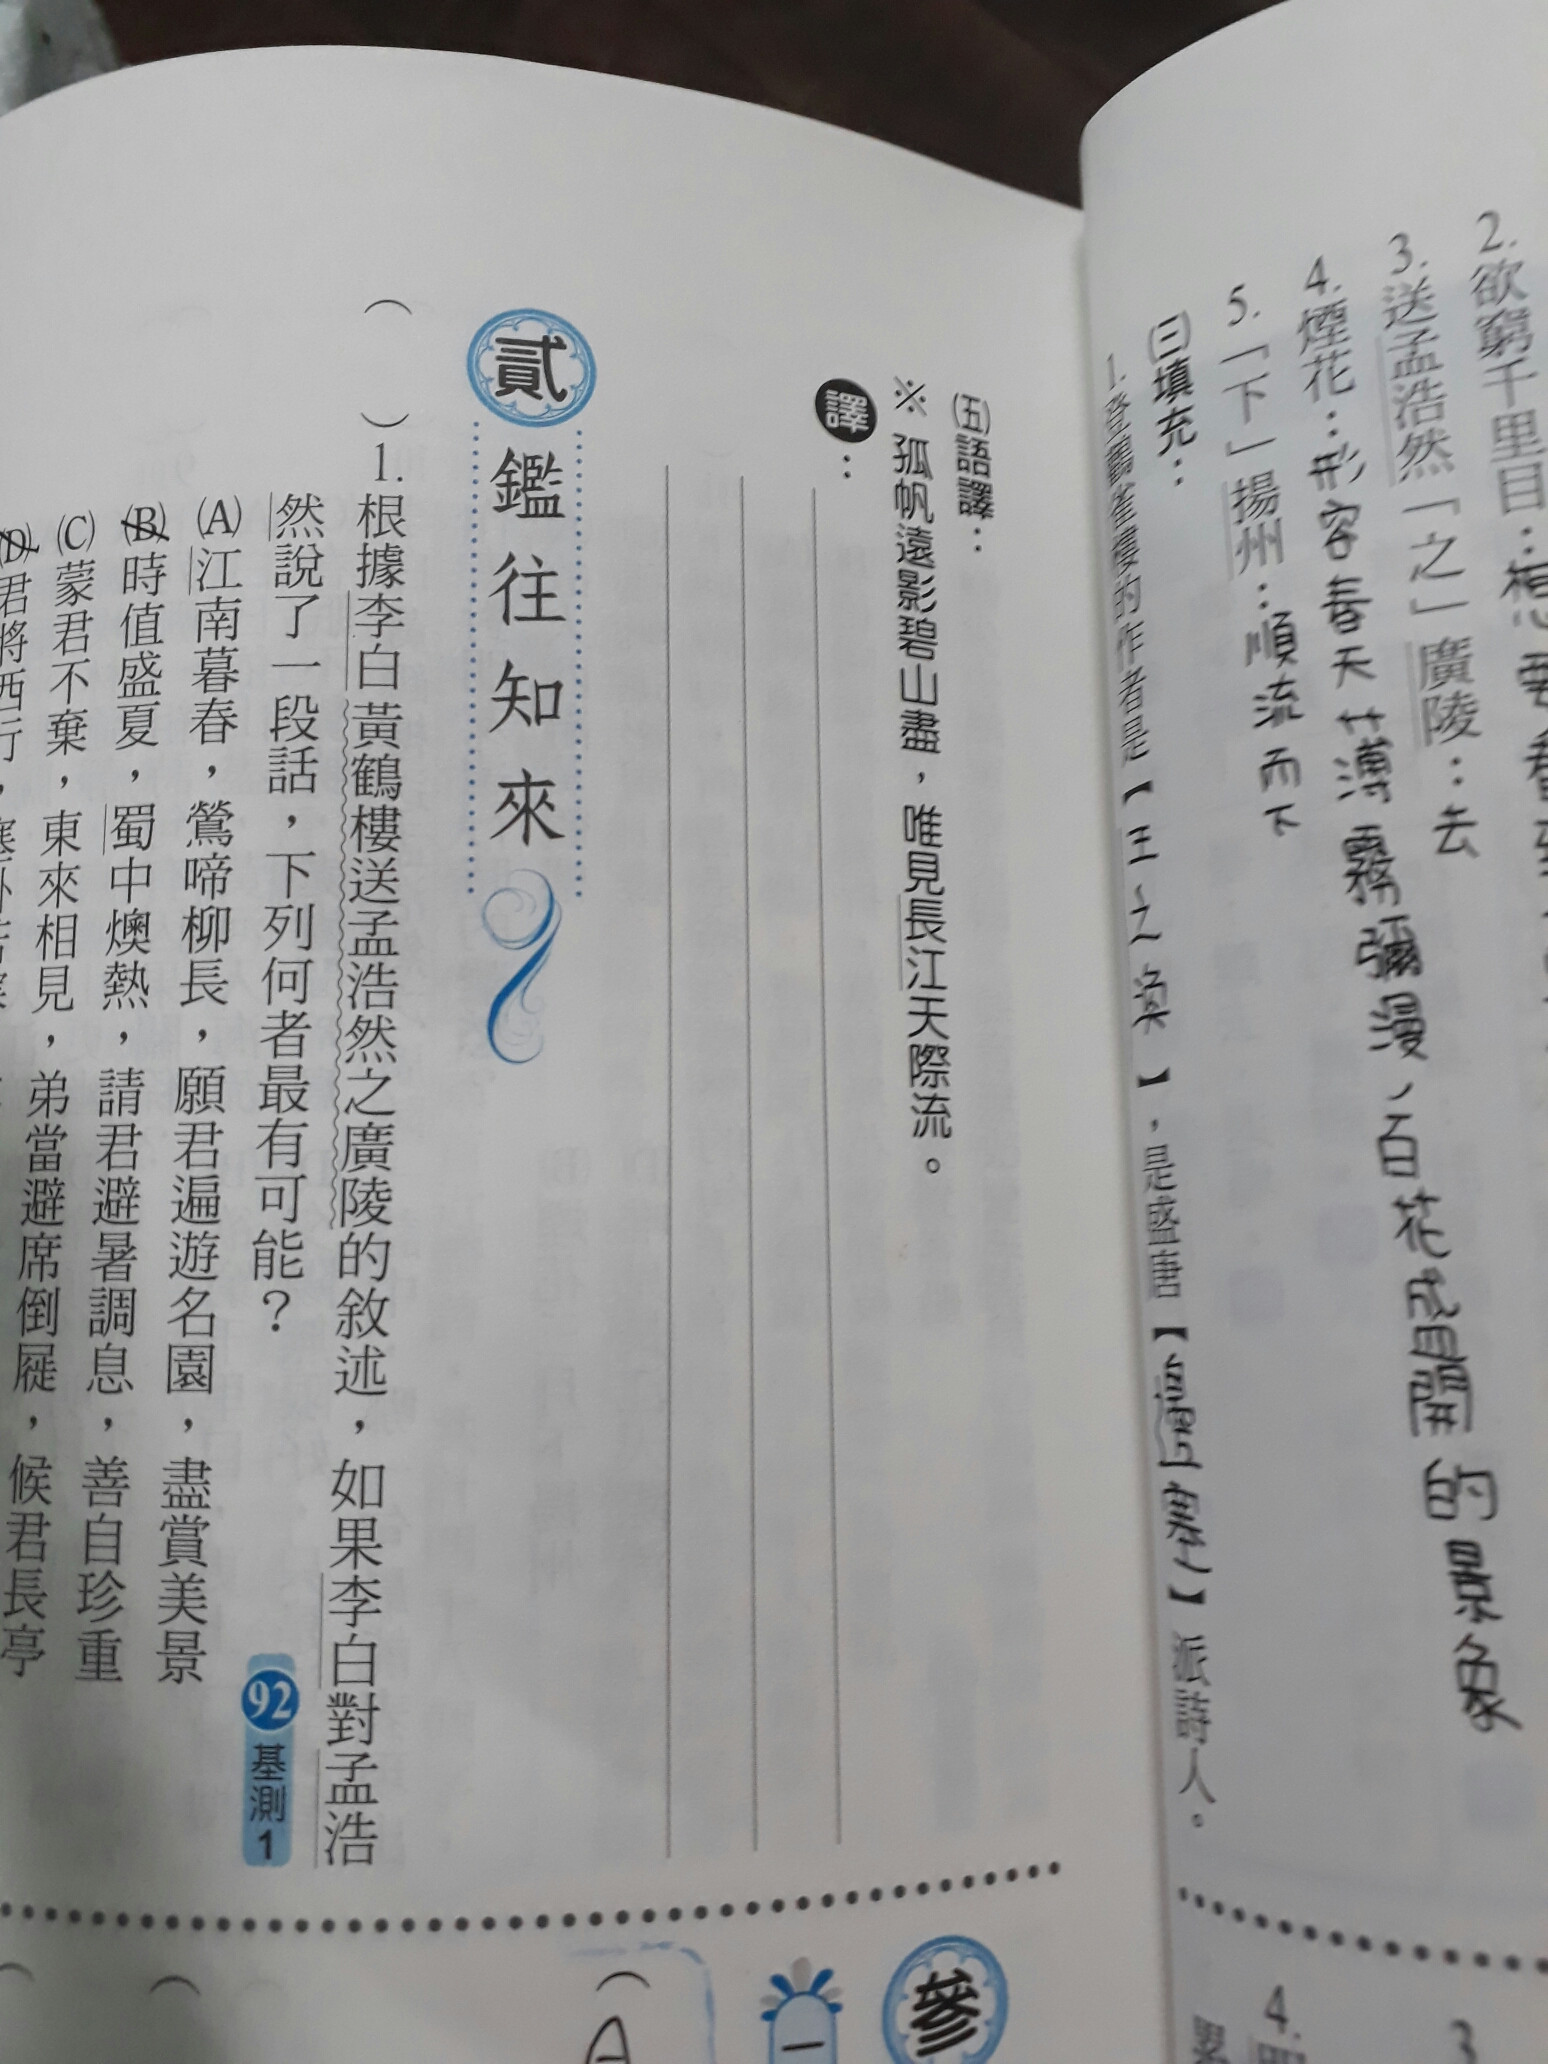 2.欲窮千里目：想要看到
3.送孟浩然「之」廣陵：去
4.煙花：形容春天薄霧彌漫、百花盛開的景象
5.「下」揚州：順流而下
㈢填充：
1.登鸛雀樓的作者是【王之渙】，是盛唐【邊塞】派詩人。
㈤語譯：
※孤帆遠影碧山盡，唯見長江天際流。
譯：
貳 鑑往知來
（　）1.根據李白黃鶴樓送孟浩然之廣陵的敘述，如果李白對孟浩
然說了一段話，下列何者最有可能？ 92基測1
(A)江南暮春，鶯啼柳長，願君遍遊名園，盡賞美景
(B)時值盛夏，蜀中燠熱，請君避暑調息，善自珍重
(C)蒙君不棄，東來相見，弟當避席倒屣，候君長亭
(D)君將西行，塞外苦寒
4.
3
參
一
（A
（
（